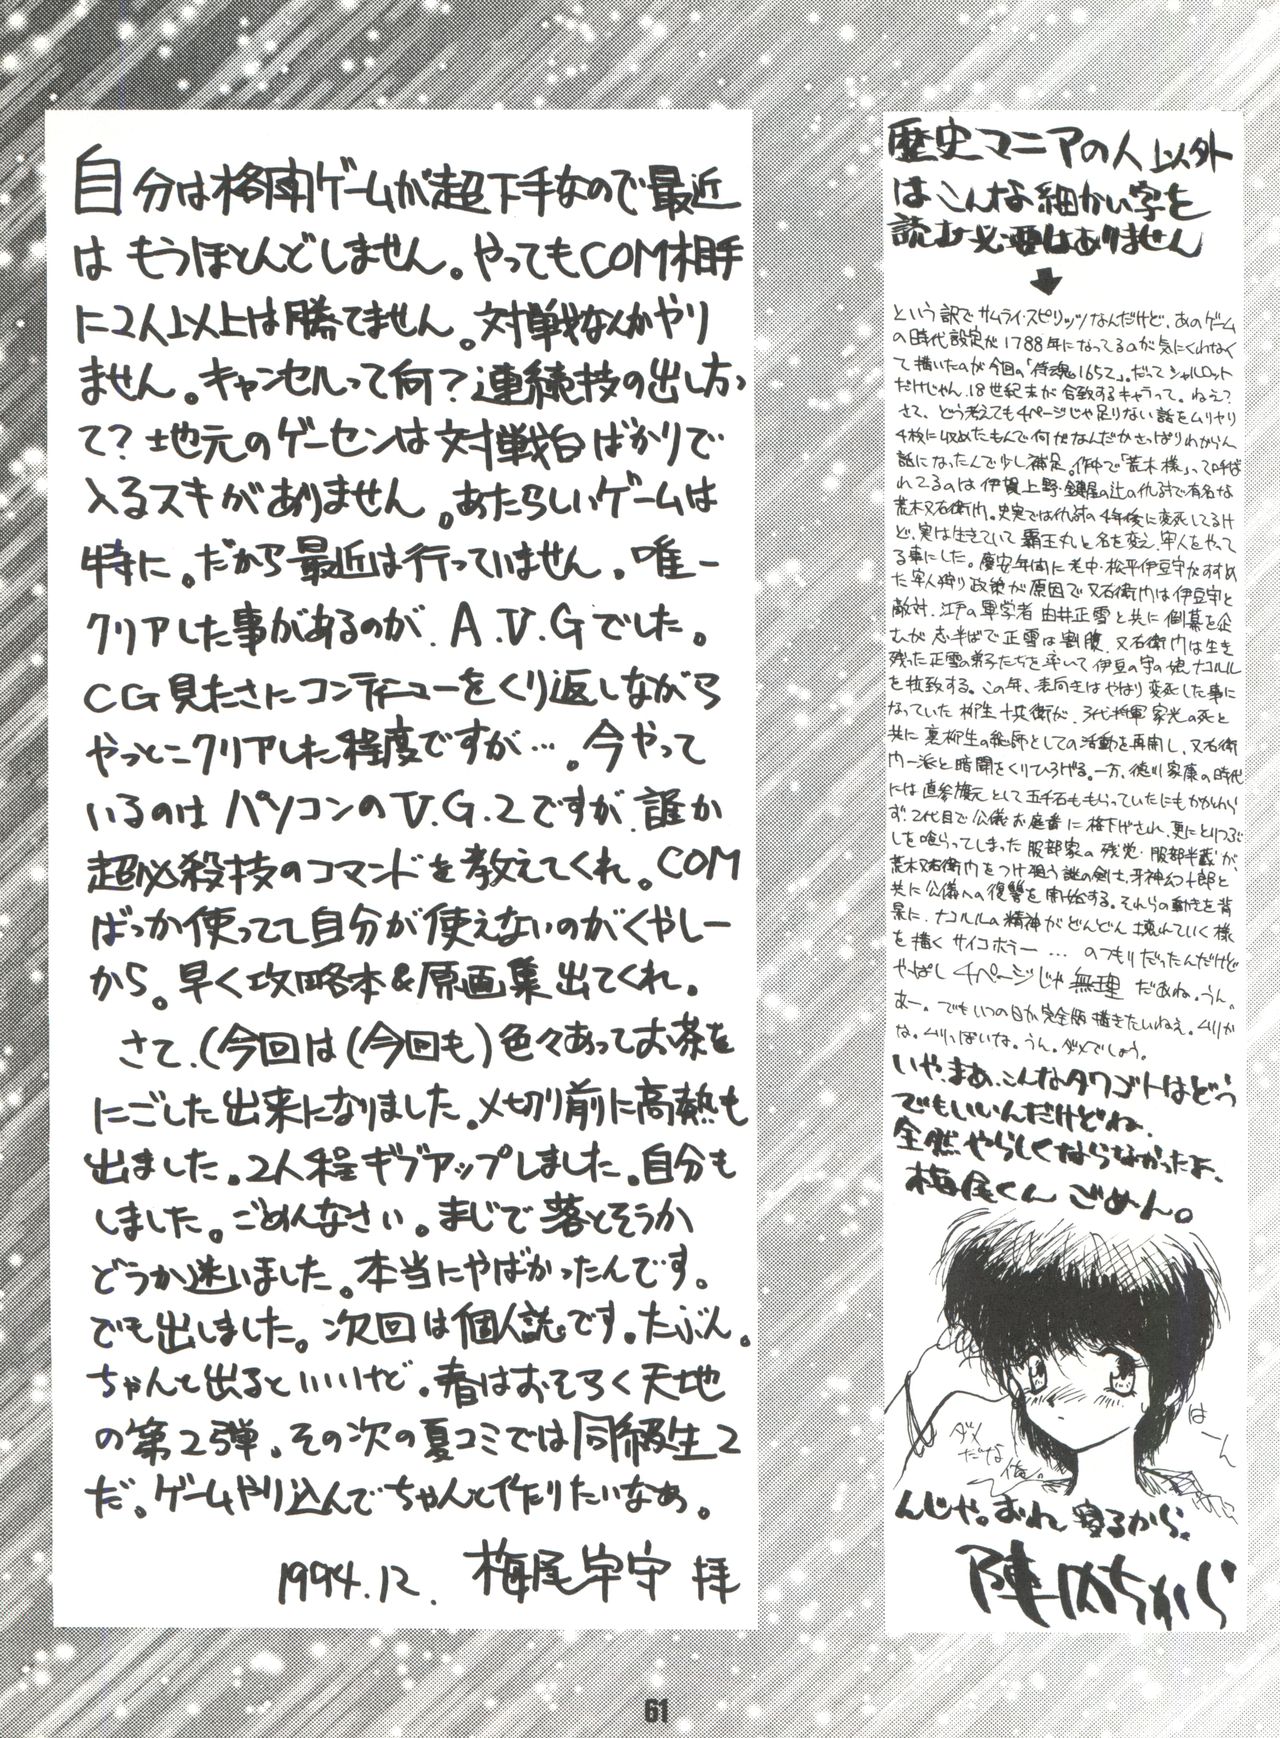 自分は格闘ゲームが超下手なので最近
は もうほとんどしません。やってもCOM相手
に2人以上は勝てません。対戦なんかやり
ません。キャンセルって何？連続技の出し方っ
て？地元のゲーセンは対戦台ばかりで
入るスキがありません。あたらしいゲームは
特に。だから最近は行っていません。唯一
クリアした事があるのが、A.V.Gでした。
CG見たさにコンティニューをくり返しながら
やっとこクリアした程度ですが…。今やって
いるのは パソコンのV.G.2ですが、誰か
超必殺技のコマンドを教えてくれ。COM
ばっか使ってて自分が使えないのがくやしー
から。早く攻略本&原画集出てくれ。
さて、(今回は(今回も)色々あってお茶を
にごした出来になりました。〆切り前に高熱も
出ました。2人程ギブアップしました。自分も
しました。ごめんなさい。まじで落とそうか
どうか迷いました。本当にやばかったんです。
でも出しました。次回は個人誌です。たぶん。
ちゃんと出るといいけど。春はおそらく天地
の第2弾、その次の夏コミでは同級生2
だ。ゲームやり込んでちゃんと作りたいなぁ。
1994.12. 梅尾宇守 拝
歴史マニアの人以外
は こんな細かい字を
読む必要はありません
↓
という訳でサムライ・スピリッツなんだけど、あのゲーム
の時代設定が1788年になってるのが気にくわなく
て描いたのが今回の「侍魂1652」。だってシャルロット
だけじゃん、18世紀末が合致するキャラって。ねえ？
さて、どう考えても4ページじゃ足りない話をムリヤリ
4枚に収めたもんで何がなんだかさっぱりわからん
話になったんで少し補足。作中で「荒木様」って呼ば
れてるのは伊賀上野・鍵屋の辻の仇討で有名な
荒木又右衛門。史実では仇討の4年後に変死してるけ
ど、実は生きていて覇王丸と名を変え、牢人をやって
る事にした。慶安年間に老中・松平伊豆守がすすめ
た牢人狩り政策が原因で又右衛門は伊豆守と
敵対、江戸の軍学者 由井正雪と共に倒幕を企
むが志半ばで正雪は割腹、又右衛門は生き
残った正雪の弟子たちを率いて伊豆の守の娘ナコルル
を拉致する。この年、表向きはやはり変死した事に
なっていた柳生十兵衛が、3代将軍家光の死と
共に裏柳生の総帥としての活動を再開し、又右衛
門一派と暗闘をくりひろげる。一方、徳川家康の時代
には直参旗元として五千石ももらっていたにもかかわら
ず、2代目で公儀お庭番に格下げされ、更にとりつぶ
しを喰らってしまった服部家の残党・服部半蔵が、
荒木又右衛門をつけ狙う謎の剣士、牙神幻十郎と
共に公儀への復讐を開始する。それらの動きを背
景に、ナコルルの精神がどんどん壊れていく様
を描くサイコホラー … のつもりだったんだけど
やっぱし4ページじゃ無理だあね。うん。
あー。でもいつの日か完全版描きたいねえ。ムリか
な。ムリっぽいな。うん。ダメでしょう。
いや、まあ、こんなタワゴトはどう
でもいいんだけどね、
全然やらしくならなかったよ、
梅尾くん ごめん。
はーん
ダメ
だな
俺。
んじゃ。おれ 寝るから。
陣内ちから
61